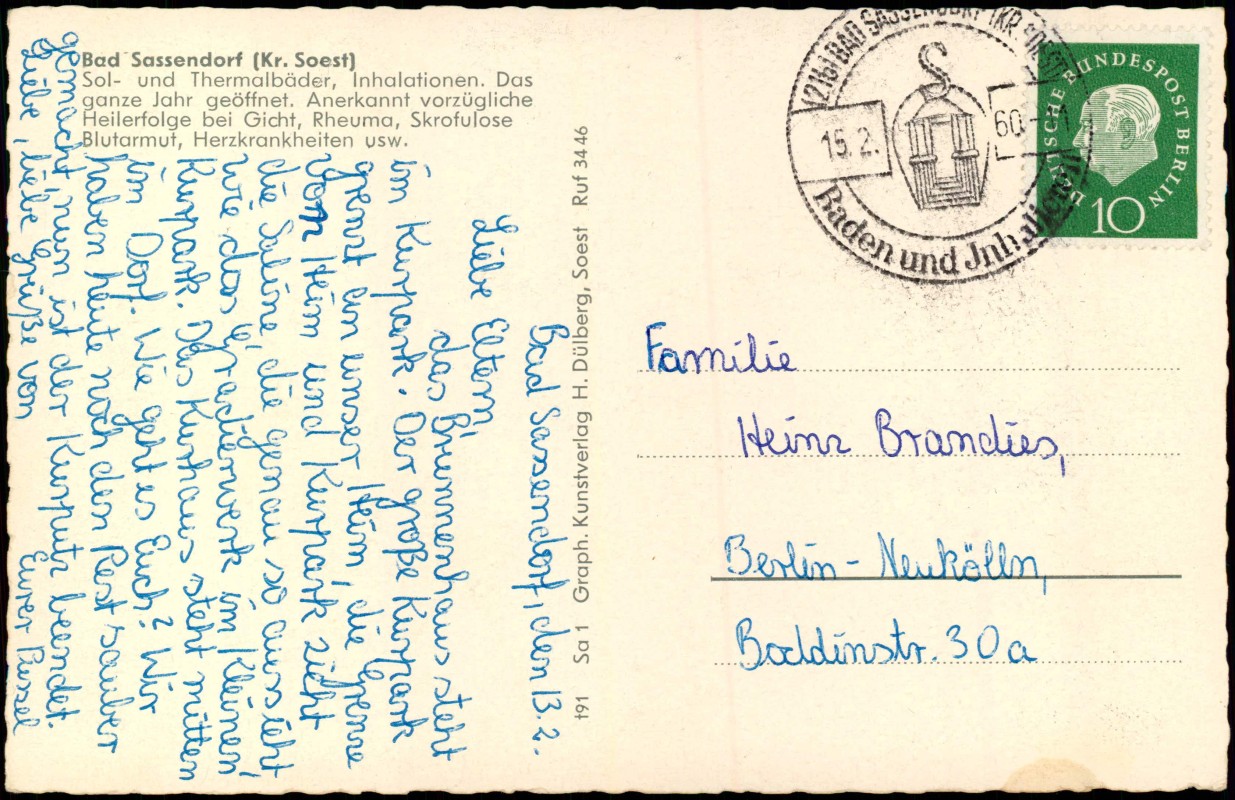 Bad Sassendorf (Kr. Soest)
Sol- und Thermalbäder, Inhalationen. Das
ganze Jahr geöffnet. Anerkannt vorzügliche
Heilerfolge bei Gicht, Rheuma, Skrofulose
Blutarmut, Herzkrankheiten usw.
Bad Sassendorf, den 13.2.
Liebe Eltern,
das Brunnenhaus steht
im Kurpark. Der große Kurpark
grenzt an unser Heim, die Grenze
vom Heim und Kurpark zieht
die Saline, die genau so aussieht,
wie das Gradierwerk im kleinen
Kurpark. Das Kurhaus steht mitten
im Dorf. Wie geht es Euch? Wir
haben heute noch den Rest sauber
gemacht nun ist der Kurputz beendet.
Liebe, liebe Grüße von
Eurer Pussel
191 Sa 1 Graph. Kunstverlag H. Dülberg, Soest Ruf 3446
(21b) BAD SASSENDORF (KR. SOEST)
15.2. 60.
Baden und Inhalieren
DEUTSCHE BUNDESPOST BERLIN
10
Familie
Heinz Brandies,
Berlin-Neukölln,
Boddinstr. 30a